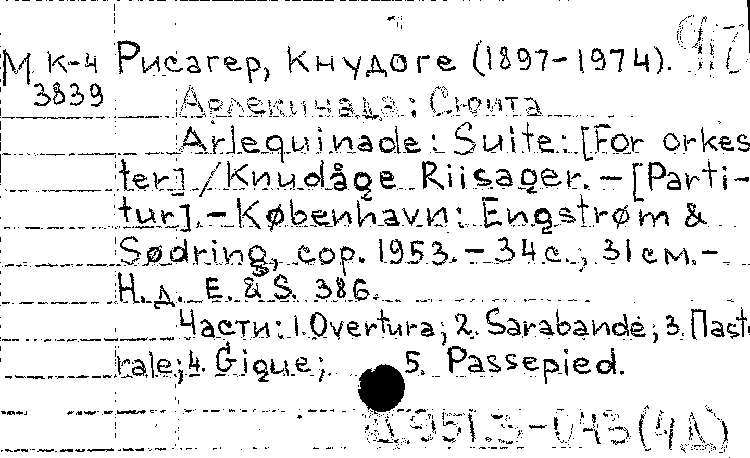 М К-4 Рисагер, Кнудоге (1897-1974).
3839 Арлекинада: Сюита
Arlequinade: Suite: [For orkes
ter] / Knudåge Riisager. — [Parti-
tur]. — København: Engstrøm &
Sødring, cop. 1953. — 34 с.; 31 см. —
Н. д. E. & S. 386.
Части: 1. Overtura; 2. Sarabande; 3. Пасто
rale; 4. Gigue; 5. Passepied.
951.3-043(4Д)